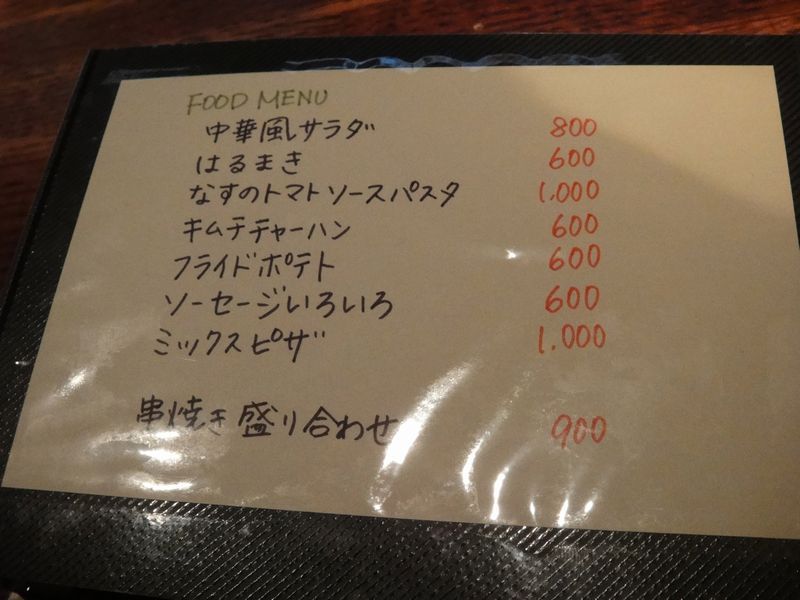 FOOD MENU
中華風サラダ 800
はるまき 600
なすのトマトソースパスタ 1,000
キムチチャーハン 600
フライドポテト 600
ソーセージいろいろ 600
ミックスピザ 1,000
串焼き盛り合わせ 900